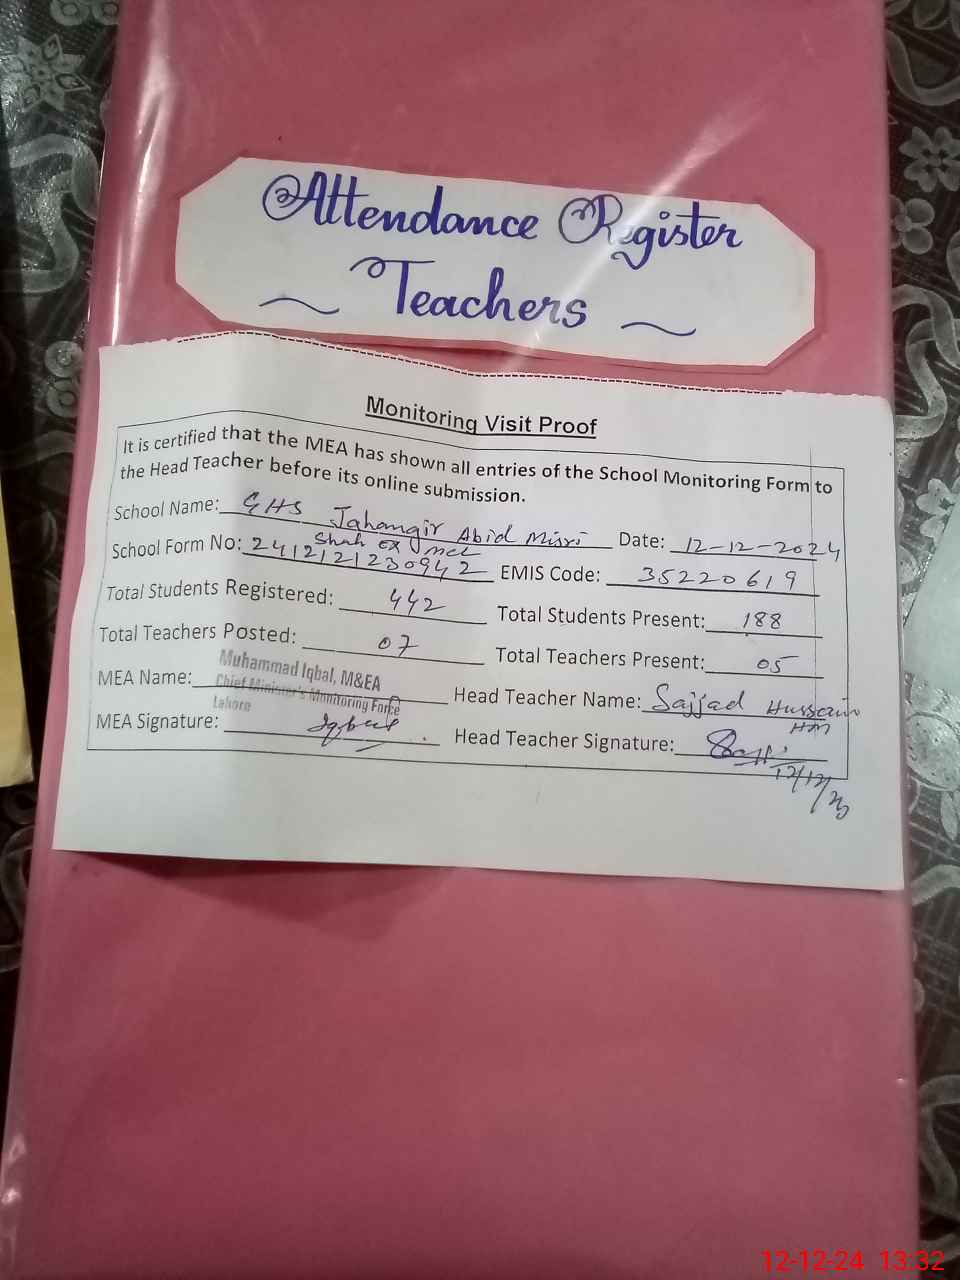 Attendance Register
Teachers
Monitoring Visit Proof
It is certified that the MEA has shown all entries of the School Monitoring Form to
the Head Teacher before its online submission.
School Name: GHS Jahangir Abid Missi Date: 12-12-2024
Shah Ex Mcl
School Form No: 2412121230942 EMIS Code: 35220619
Total Students Registered: 442 Total Students Present: 188
Total Teachers Posted: 07 Total Teachers Present: 05
Muhammad Iqbal, M&EA
Chief Minister's Monitoring Force
Lahore
MEA Name: Head Teacher Name: Sajjad Hussain
HM
MEA Signature: Iqbal Head Teacher Signature:
12/12/
12-12-24 13:32